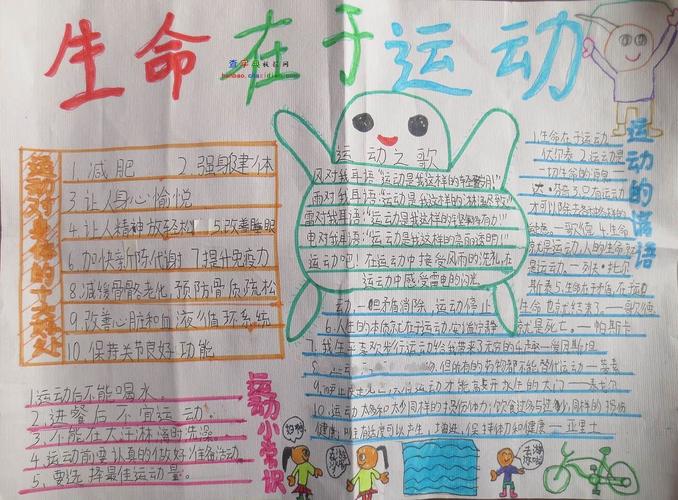 生命在于运动
查字典板报网
banbao.chazidian.com
运动对身体的十大好处
1.减肥 2.强身健体
3.让人身心愉悦
4.让人精神放轻松 5.改善睡眠
6.加快新陈代谢 7.提升免疫力
8.减缓骨骼老化,预防骨质疏松
9.改善心脏和血液循环系统
10.保持关节良好功能
运动之歌
风对我耳语:“运动是我这样的轻
雨对我耳语:“运动是我这样的淋漓尽致!”
雷对我耳语:“运动是我这样的铿锵有力!”
电对我耳语:“运动是我这样的亮丽透明!”
运动吧!在运动中接受风雨的洗礼,在
运动中感受雷电的闪光
运动的谚语
1.生命在于运动
伏尔泰 2.运动是
一切生命的源泉
达·芬奇 3.只有运动
才可以除去各种各样的
4.生命
就是运动,人的生命就
是运动。—列夫·托尔
斯泰 5.生命在于矛盾,在于运
动,一旦矛盾消除,运动停止,生命也就结束了。—歌德
6.人的本质就在于运动,安谧宁静就是死亡。—帕斯卡
7.我生平喜欢步行,运动给我带来了无穷的乐趣—爱因斯坦
但所有的药物都不能替代运动
运动才能敲开永生的大门—泰戈尔
10.运动太多和太少,同样的损伤体力;饮食过多与过少,同样的损伤
健康;唯有适度可以产生、增进、保持体力和健康—亚里士
运动小常识
1.运动后不能喝水。
2.进餐后不宜运动。
3.不能在大汗淋漓时洗澡。
4.运动前要认真的做好准备活动。
5.要选择最佳运动量。